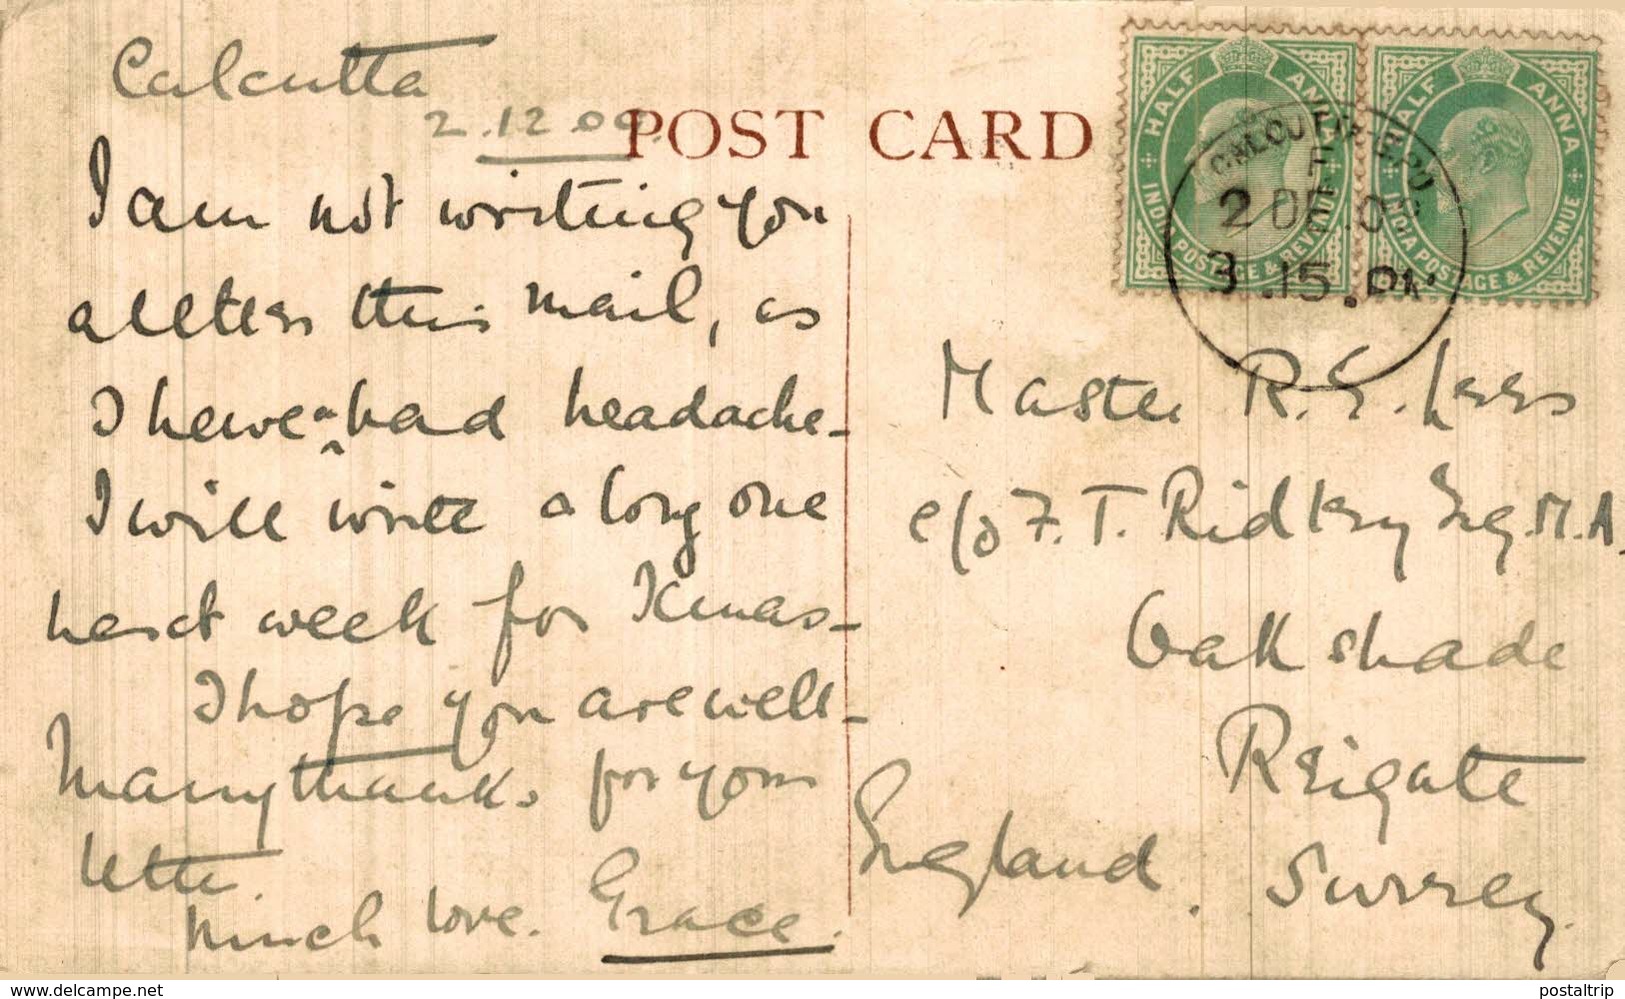 Calcutta
2.12.09
POST CARD
I am not writing you
a letter this mail, as
I have a bad headache -
I will write a long one
next week for Xmas -
I hope you are well -
Many thanks for your
letter.
Much love. Grace.
HALF ANNA
INDIA POSTAGE & REVENUE
HALF ANNA
INDIA POSTAGE & REVENUE
CALCUTTA G.P.O
2 DE. 0
3.15.PM
Master R. E. Lees
c/o F. T. Ridley Esq. M.A.
Oakshade
Reigate
Surrey.
England.
www.delcampe.net
postaltrip